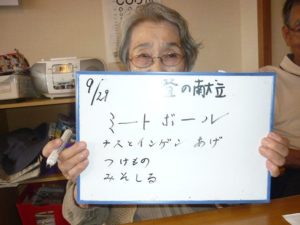 9/29 昼の献立
ミートボール
ナスとインゲン あげ
つけもの
みそしる